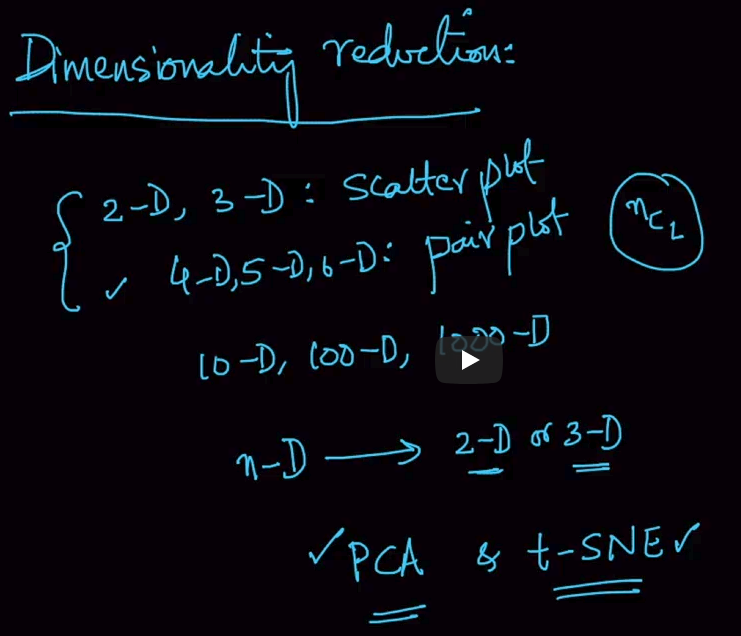 Dimensionality reduction:
2-D, 3-D : scatter plot
✓ 4-D, 5-D, 6-D: pair plot
nC2
10-D, 100-D, 1000-D
n-D → 2-D or 3-D
✓ PCA & t-SNE ✓